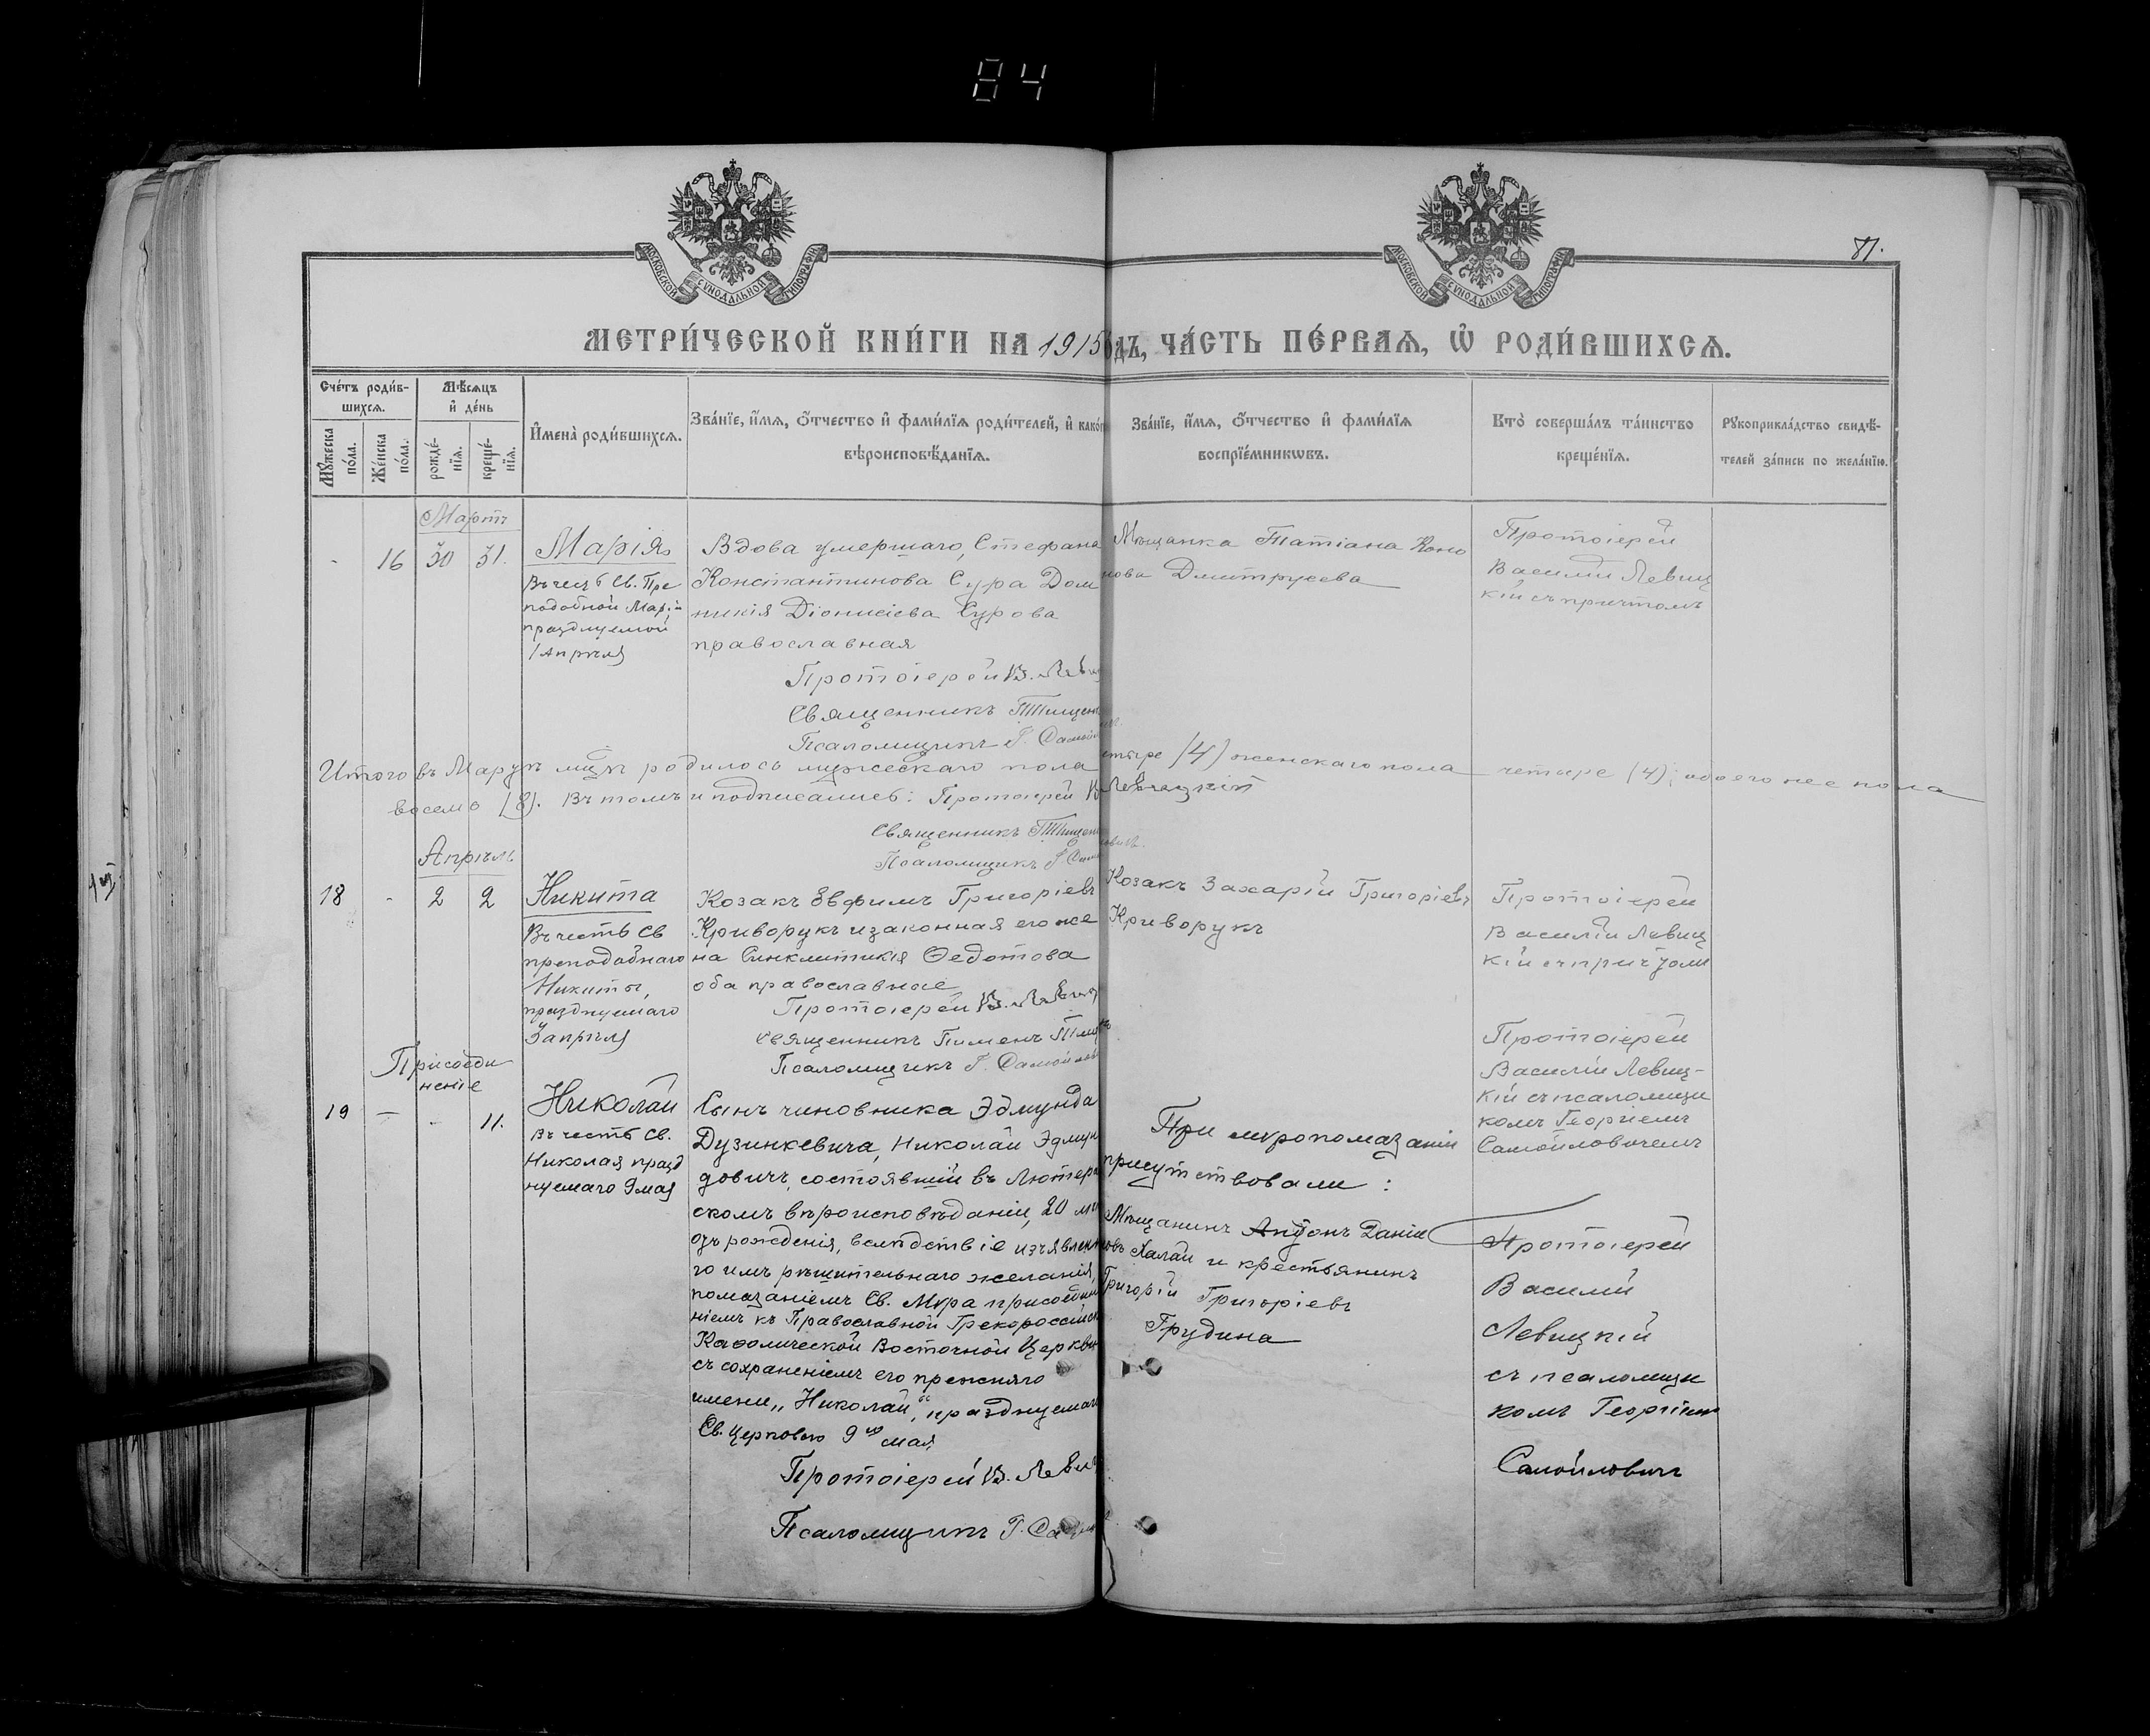 84
МОСКОВСКОЙ СѴНОДАЛЬНОЙ ТИПОГРАФІИ
МОСКОВСКОЙ СѴНОДАЛЬНОЙ ТИПОГРАФІИ
81.
МЕТРИ́ЧЕСКОЙ КНИ́ГИ НА 1915 ДЪ, ЧА́СТЬ ПЕ́РВАѦ, Ѡ҆ РОДИ́ВШИХСѦ.
Сче́тъ роди́в-
шихсѧ.
Мѣ́сѧцъ
и҆ де́нь
Мꙋ́жеска
по́ла.
Же́нска
по́ла.
рожде́-
нїѧ.
креще́-
нїѧ.
И҆мена̀ роди́вшихсѧ.
Зва́нїе, и҆́мѧ, ѻ҆́тчество и҆ фами́лїѧ роди́телей, и҆ како́гѡ
вѣроисповѣ́данїѧ.
Зва́нїе, и҆́мѧ, ѻ҆́тчество и҆ фами́лїѧ
воспрїе́мникѡвъ.
Кто̀ соверша́лъ та́инство
креще́нїѧ.
Рꙋкоприкла́дство свидѣ́-
телей за́писи по жела́нїю.
Мартъ
- 16 30 31.
Марія
Въ честь Св. Пре
подобной Маріи
празднуемой
1 Апрѣля
Вдова умершаго, Стефана
Константинова Сура Дом
никія Діонисіева Сурова
православная
Протоіерей В. Левиц
Священникъ Тищен
Псаломщикъ Г. Самойл
Мѣщанка Татіана Коно
нова Дмитрукова
Протоіерей
Василій Левиц
кій съ причтомъ
Итого въ Мартѣ мцѣ родилось мужескаго пола четыре (4) женскаго пола четыре (4); обоего же пола
восемь (8). Въ томъ и подписались: Протоіерей В Левицкій
Священникъ Тищен
Псаломщикъ Г. Само
Апрѣль
18 - 2 2
Никита
Въ честь Св
преподобнаго
Никиты,
празднуемаго
3 апрѣля
Козакъ Евфимъ Григоріевъ
Криворукъ и законная его же
на Синклитикія Ѳедотова
оба православные
Протоіерей В. Левиц
Священникъ Пименъ Тищ
Псаломщикъ Г. Самойлов
Козакъ Захарій Григоріевъ
Криворукъ
Протоіерей
Василій Левиц
кій съ причтомъ
Присоеди
неніе
19 — - 11.
Николай
Въ честь Св.
Николая празд
нуемаго 9 мая
Сынъ чиновника Эдмунда
Дузинкевича, Николай Эдмун
довичъ, состоявшій въ Лютеран
скомъ вѣроисповѣданіи, 20 лѣтъ
отъ рожденія, вслѣдствіе изъявленна
го имъ рѣшительнаго желанія,
помазаніемъ Св. Мѵра присоеди
ніемъ къ Православной Грекороссійск
Каѳолической Восточной Церкви
съ сохраненіемъ его прежняго
имени „Николай“, празднуемаго
Св. Церковью 9го мая
Протоіерей В. Левиц
Псаломщикъ Г. Самойл
При мѵропомазаніи
присутствовали:
Мѣщанинъ Антонъ Даніи
ловъ Халай и крестьянинъ
Григорій Григоріевъ
Грудина
Протоіерей
Василій Левиц-
кій съ псаломщи
комъ Георгіемъ
Самойловичемъ
Протоіерей
Василій
Левицкій
съ псаломщи
комъ Георгіемъ
Самойловичъ